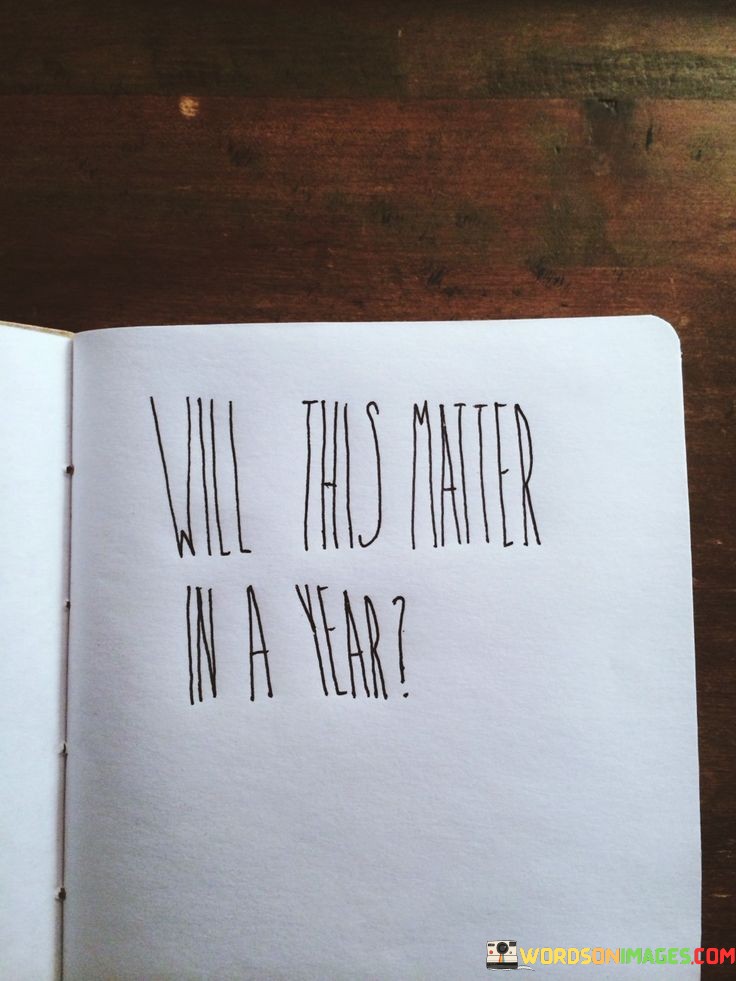 WILL THIS MATTER
IN A YEAR?
WORDSONIMAGES.COM